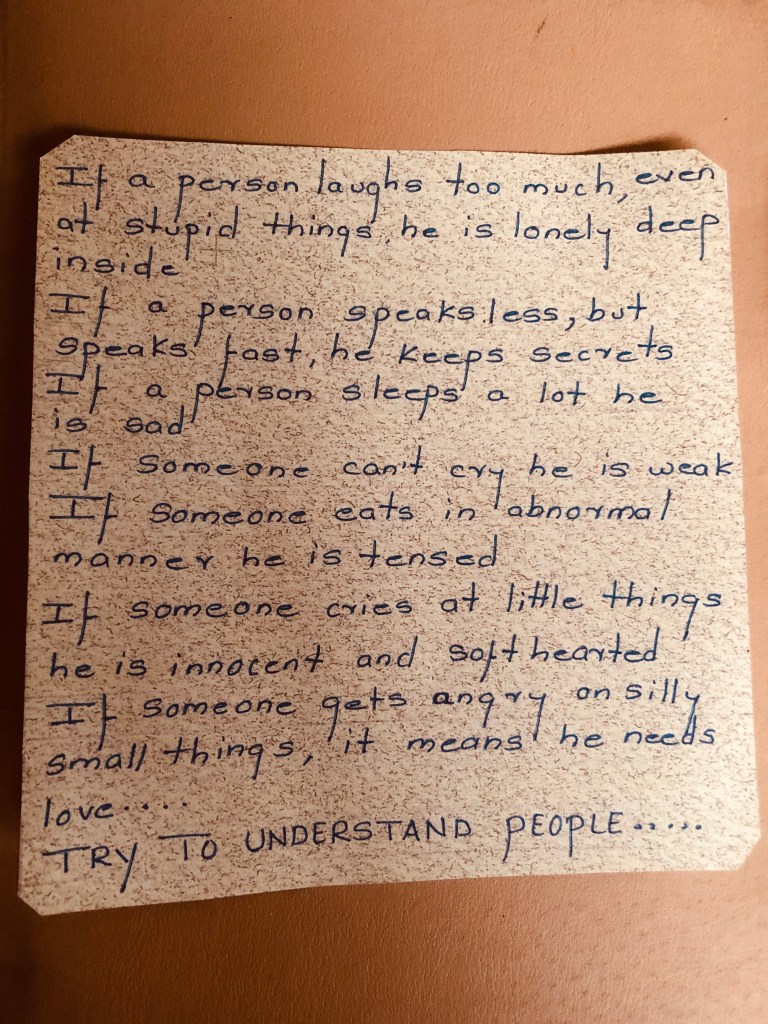 If a person laughs too much, even
at stupid things, he is lonely deep
inside
If a person speaks less, but
speaks fast, he keeps secrets
If a person sleeps a lot he
is sad
If someone can't cry he is weak
If someone eats in abnormal
manner he is tensed
If someone cries at little things
he is innocent and soft hearted
If someone gets angry on silly
small things, it means he needs
love....
TRY TO UNDERSTAND PEOPLE.....